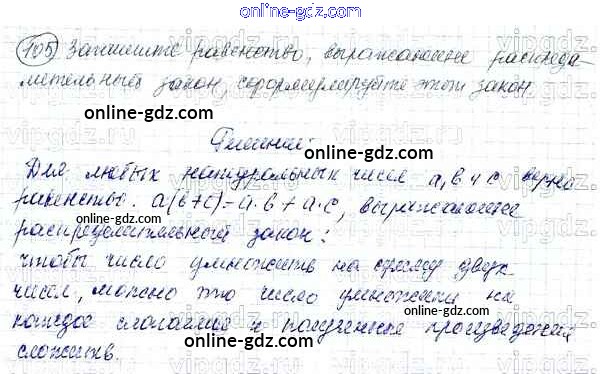 online-gdz.com
105 Запишите равенство, выражающее распреде-
лительный закон, сформулируйте этот закон.
online-gdz.com
Решение:
online-gdz.com
Для любых натуральных чисел а, в и с верно
равенство. а(в+с)=а·в+а·с, выражающее
online-gdz.com
распределительный закон:
чтобы число умножить на сумму двух
online-gdz.com
чисел, можно это число умножить на
каждое слагаемое и полученные произведения
сложить.
online-gdz.com